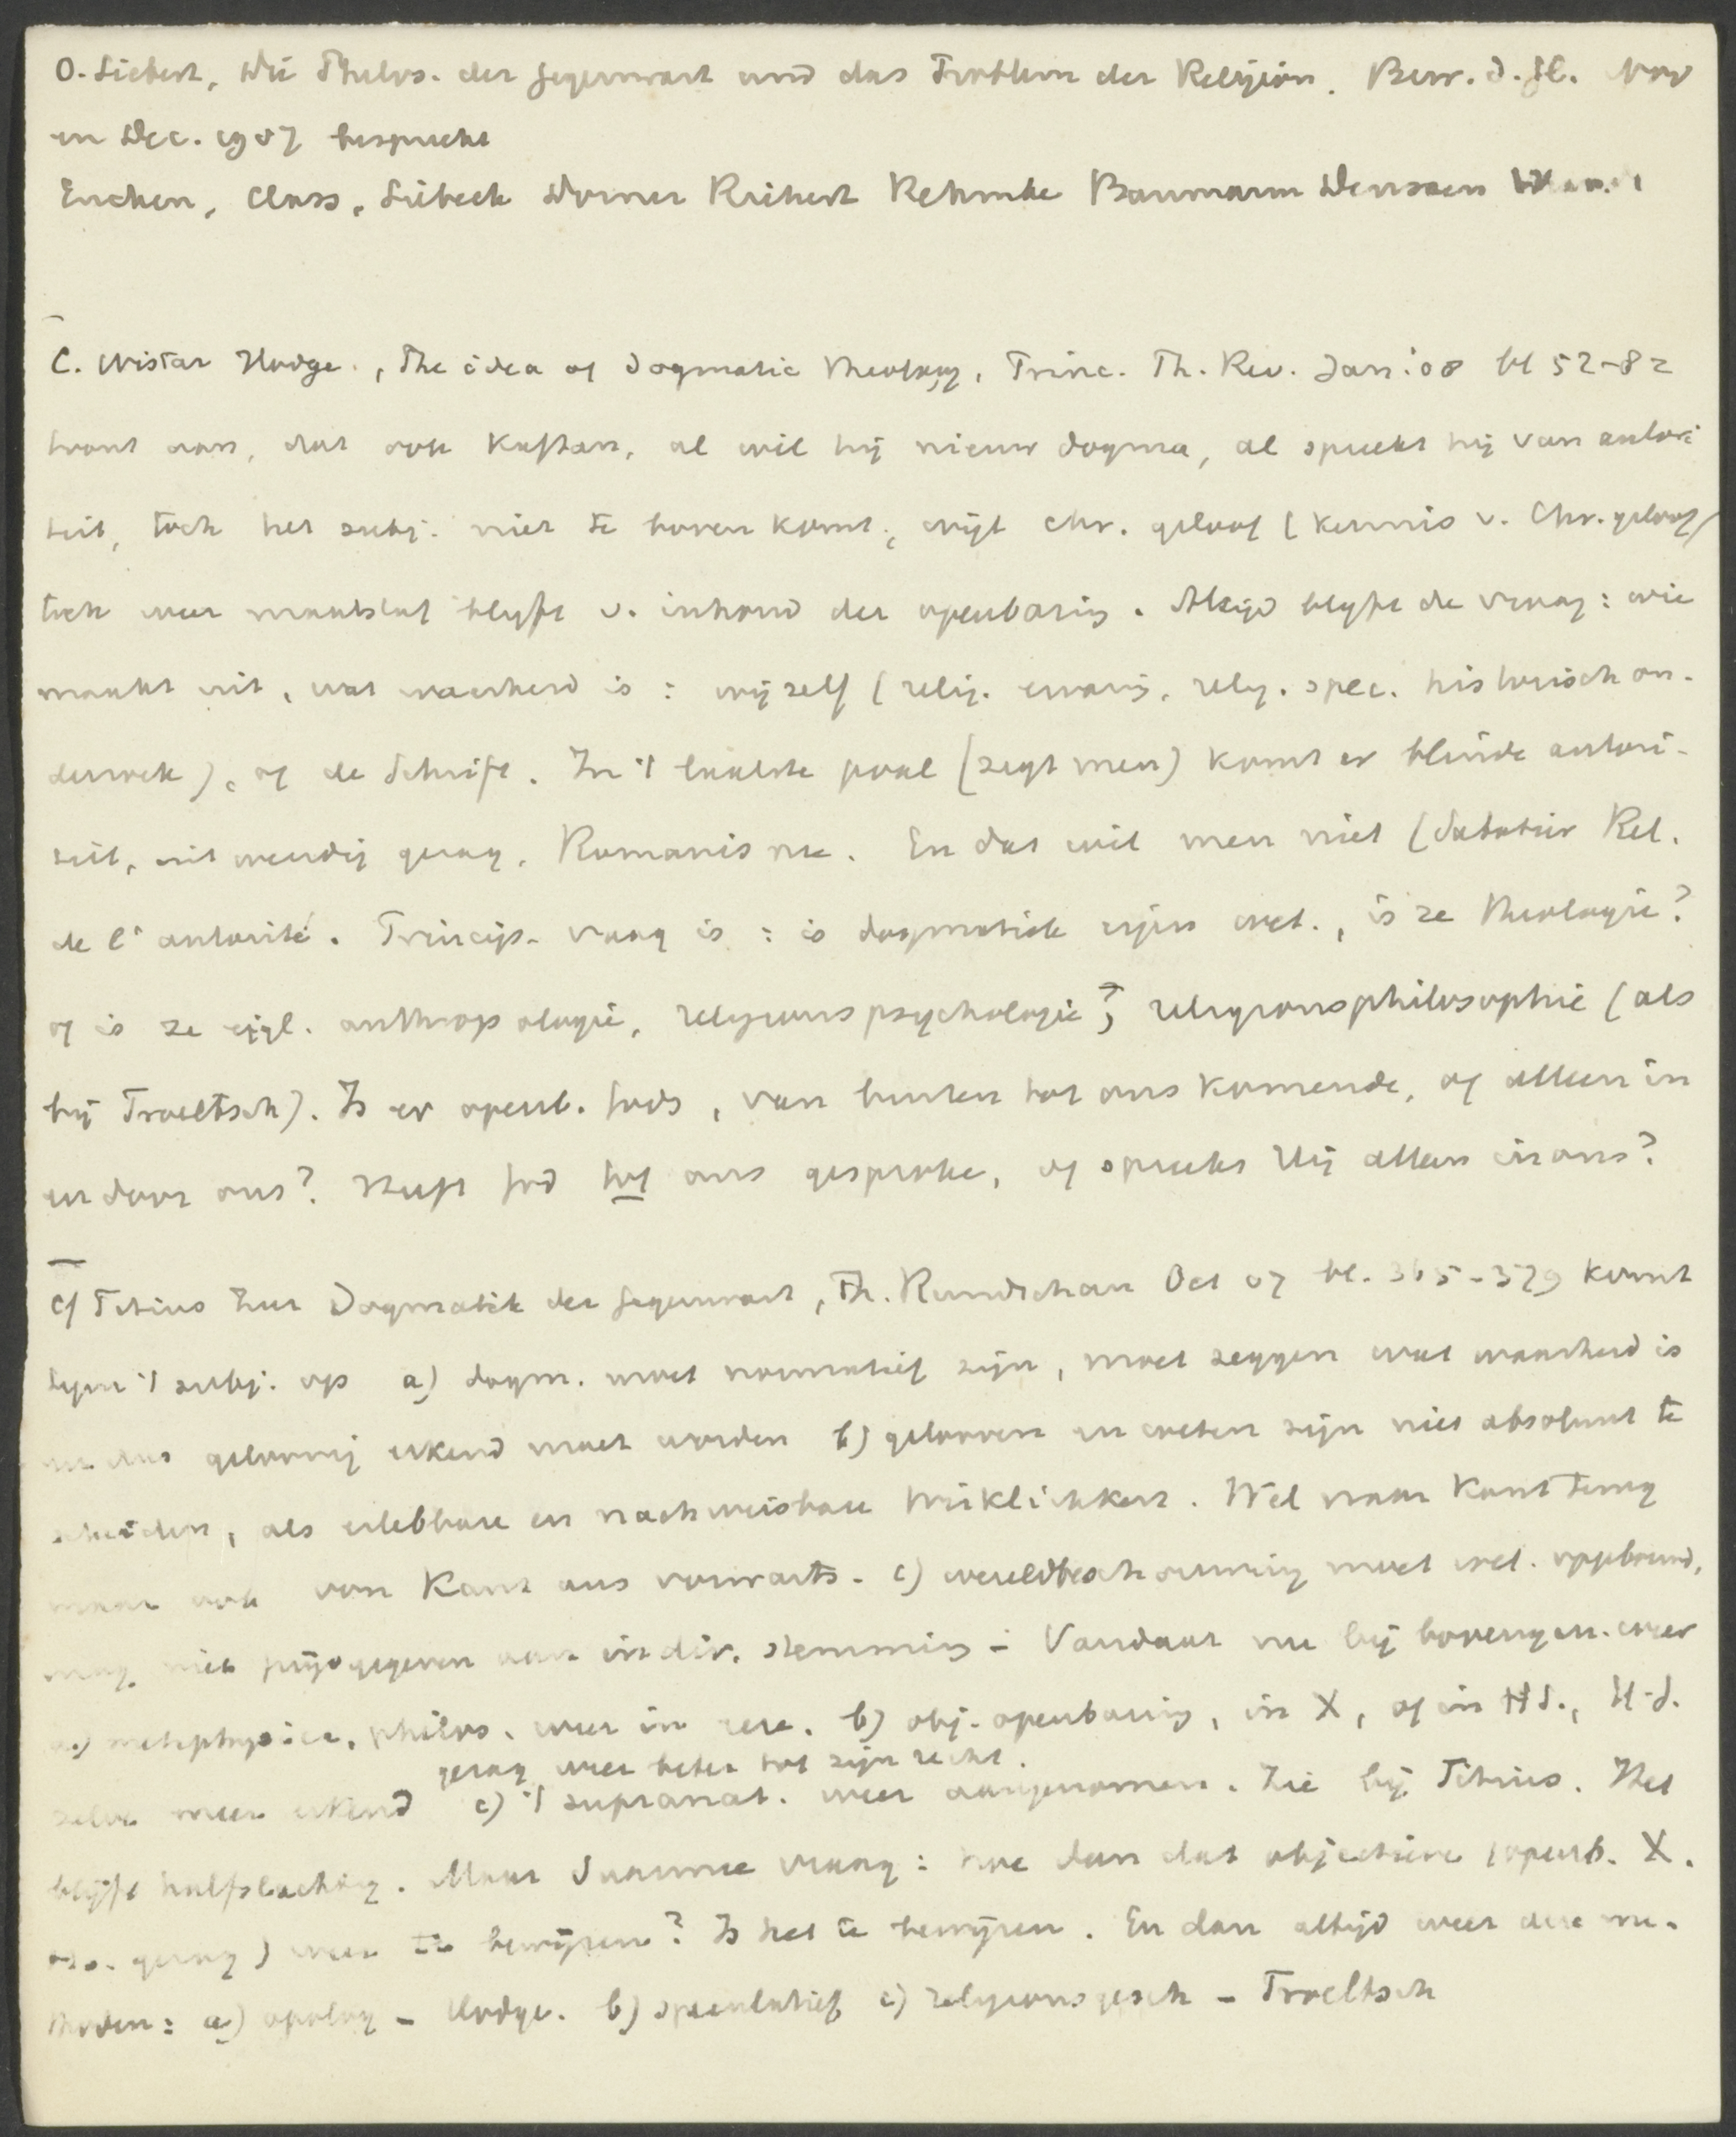 O. Siebert, Die Philos. der Gegenwart und das Problem der Religion. Bew. d. Gl. Nov
en Dec. 1907 bespreekt
Eucken, Class, Siebeck Dorner Richert Rehmke Baumann Deussen
C. Wistar Hodge., The idea of dogmatic theology, Princ. Th. Rev. Jan: 08 bl 52-82
toont aan, dat ook Kaftan, al wil hij nieuw dogma, al spreekt hij van autori
teit, toch het subj. niet te boven komt; wijl chr. geloof (kennis v. Chr. geloof)
toch weer maatstaf blijft v. inhoud der openbaring. Altijd blijft de vraag: wie
maakt uit, wat waarheid is: wijzelf (relig. ervaring, relig. spec. historisch on-
derzoek), of de Schrift. In 't laatste geval (zegt men) komt er blinde autori-
teit, uitwendig gezag, Romanisme. En dat wil men niet (Sabatier Rel.
de l'autorité. Princip. vraag is: is dogmatiek eigen wet., is ze theologie?
of is ze eigl. anthropologie, religionspsychologie?, religionsphilosophie (als
bij Troeltsch). Is er openb. Gods, van buiten tot ons komende, of alleen in
en door ons? Heeft God tot ons gesproke, of spreekt Hij alleen in ons?
Cf Titius Zur Dogmatik der Gegenwart, Th. Rundschau Oct 07 bl. 365-379 komt
tegen 't subj. op a) dogm. moet normatief zijn, moet zeggen wat waarheid is
en dus geloovig erkend moet worden b) gelooven en weten zijn niet absoluut te
scheiden, als erlebbare en nachweisbare Wirklichkeit. Wel naar Kant terug
maar ook von Kant aus vorwarts. c) wereldbeschouwing moet wet. opgebouwd,
mag niet prijsgegeven aan individ. stemming - Vandaar nu bij bovengen. weer
a) metaphysica, philos. weer in eere. b) obj. openbaring, in X, of in H S., H.S.
gezag weer beter tot zijn recht.
zelve meer erkend c) 't supranat. weer aangenomen. Zie bij Titius. Het
blijft halfslachtig. Maar daarmee vraag: hoe dan dat objectieve (openb. X.
gezag) weer te bewijzen? Is het te bewijzen. En dan altijd weer deze me-
thoden: a) apolog - Hodge. b) speculatief c) religionsgesch - Troeltsch